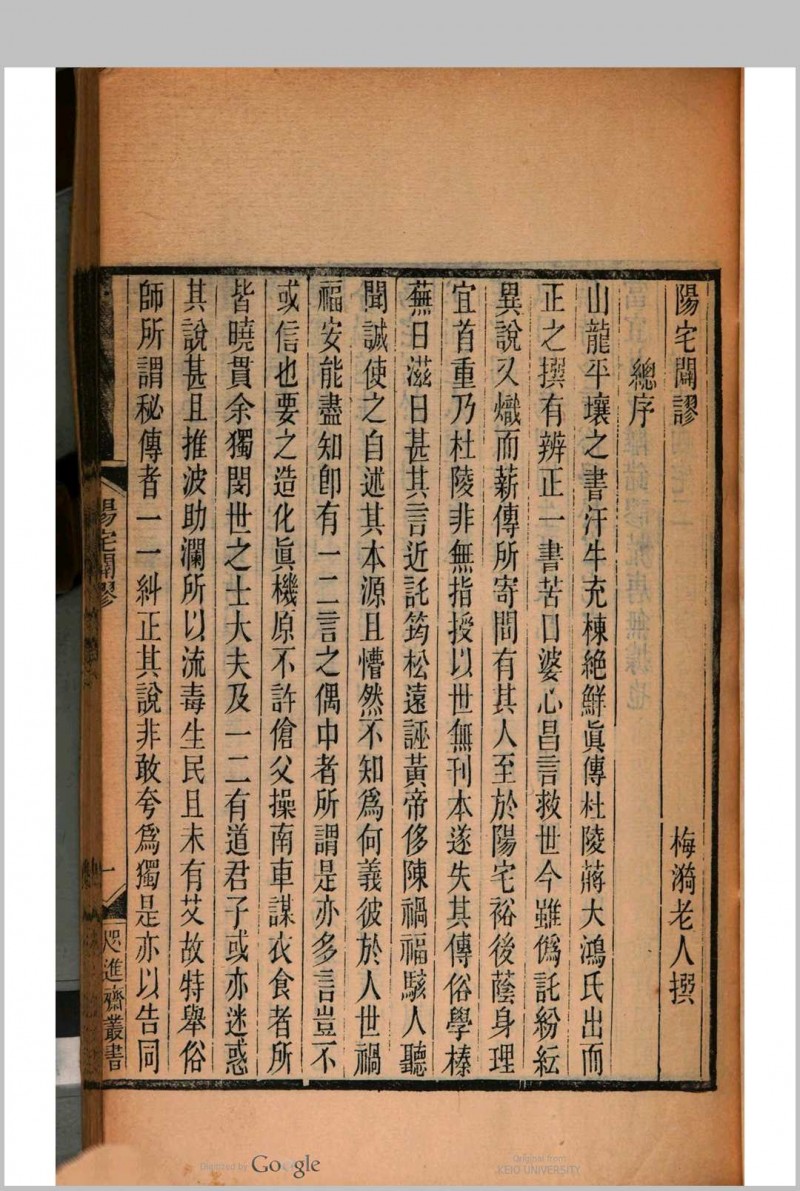 陽宅闢謬
梅漪老人撰
總序
山龍平壤之書汗牛充棟絶鮮眞傳杜陵蔣大鴻氏出而
正之撰有辨正一書苦口婆心昌言救世今雖僞託紛紜
異說又熾而薪傳所寄間有其人至於陽宅裕後蔭身理
宜首重乃杜陵非無指授以世無刊本遂失其傳俗學榛
蕪日滋日甚其言近託筠松遠誣黃帝侈陳禍福駭人聽
聞誠使之自述其本源且懵然不知爲何義彼於人世禍
福安能盡知卽有一二言之偶中者所謂是亦多言豈不
或信也要之造化眞機原不許傖父操南車謀衣食者所
皆曉貫余獨閔世之士大夫及一二有道君子或亦迷惑
其說甚且推波助瀾所以流毒生民且未有艾故特舉俗
師所謂秘傳者一一糾正其說非敢夸爲獨是亦以告同
陽宅闢謬
一
咫進齋叢書
Digitized by Google
Original from
KEIO UNIVERSITY